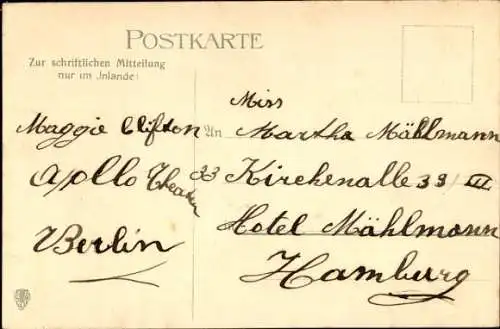 POSTKARTE
Zur schriftlichen Mitteilung
nur im Inlande!
Maggie Clifton
Apollo Theater
Berlin
Miss
An Martha Mählmann
33 Kirchenalle 39 III
Hotel Mählmann
Hamburg